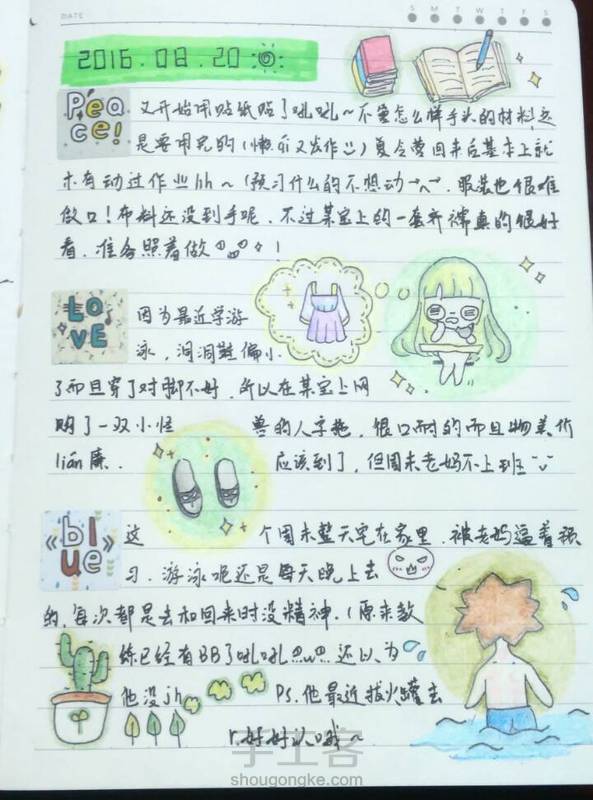 DATE
S M T W T F S
2016.08.20
Peace!
又开始用贴纸贴了吼吼~不管怎么样手头的材料还
是要用完的(懒癌又发作 夏令营回来后基本上就
木有动过作业hh~(预习什么的不想动 服装也很难
做口!布料还没到手呢.不过某宝上的一套 裤真的很好
看.准备照着做 !
LOVE
因为最近学游
泳,洞洞鞋偏小
了而且穿了对脚不好,所以在某宝上网
购了一双小怪兽的人字拖,很口耐的而且物美价
lián廉. 应该到了,但周末老妈不上班
《blue》
这个周末整天宅在家里.被老妈逼着预
习.游泳呢还是每天晚上去
的,每次都是去和回来时没精神.(原来教
练已经有BB了吼吼 还以为
他没jh PS.他最近拔火罐去
了好好认哦~
手工客
shougongke.com